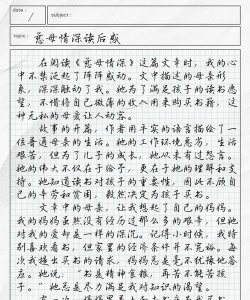 date:
/
subject:
topic: 慈母情深读后感
在阅读《慈母情深》这篇文章时，我的心
中不禁泛起了阵阵感动。文中描述的母亲形
象，深深触动了我。她为了满足孩子的读书愿
望，不惜将自己微薄的收入用来购买书籍，这
种无私的母爱让人动容。
故事的开篇，作者用平实的语言描绘了一
位普通母亲的生活。她的工作环境恶劣，生活
艰苦，但为了儿子的成长，她从未有过怨言。
她的伟大不仅在于给予，更在于她的理解和支
持。她知道读书对孩子的重要性，因此不顾自
己的辛劳和贫困，毅然决定为孩子买书。
文章中的母亲，让我想起了自己的妈妈。
我的妈妈虽然没有经历过那么多的艰辛，但她
对我的爱却是一样的深沉。记得小时候，我特
别喜欢看书，但家里的经济条件并不宽裕。每
次我提出买书的请求，妈妈总是毫不犹豫地答
应。她说："书是精神食粮，再苦不能苦孩
子。"她总是尽力满足我对知识的渴望。